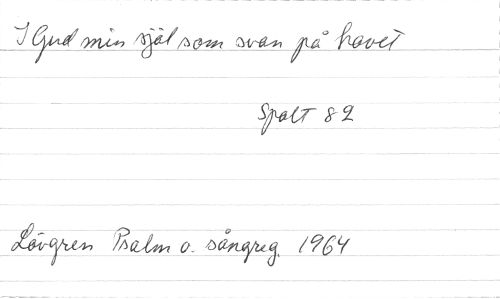 I Gud min själ som svan på havet
Spalt 82
Lövgren Psalm o. sångreg. 1964